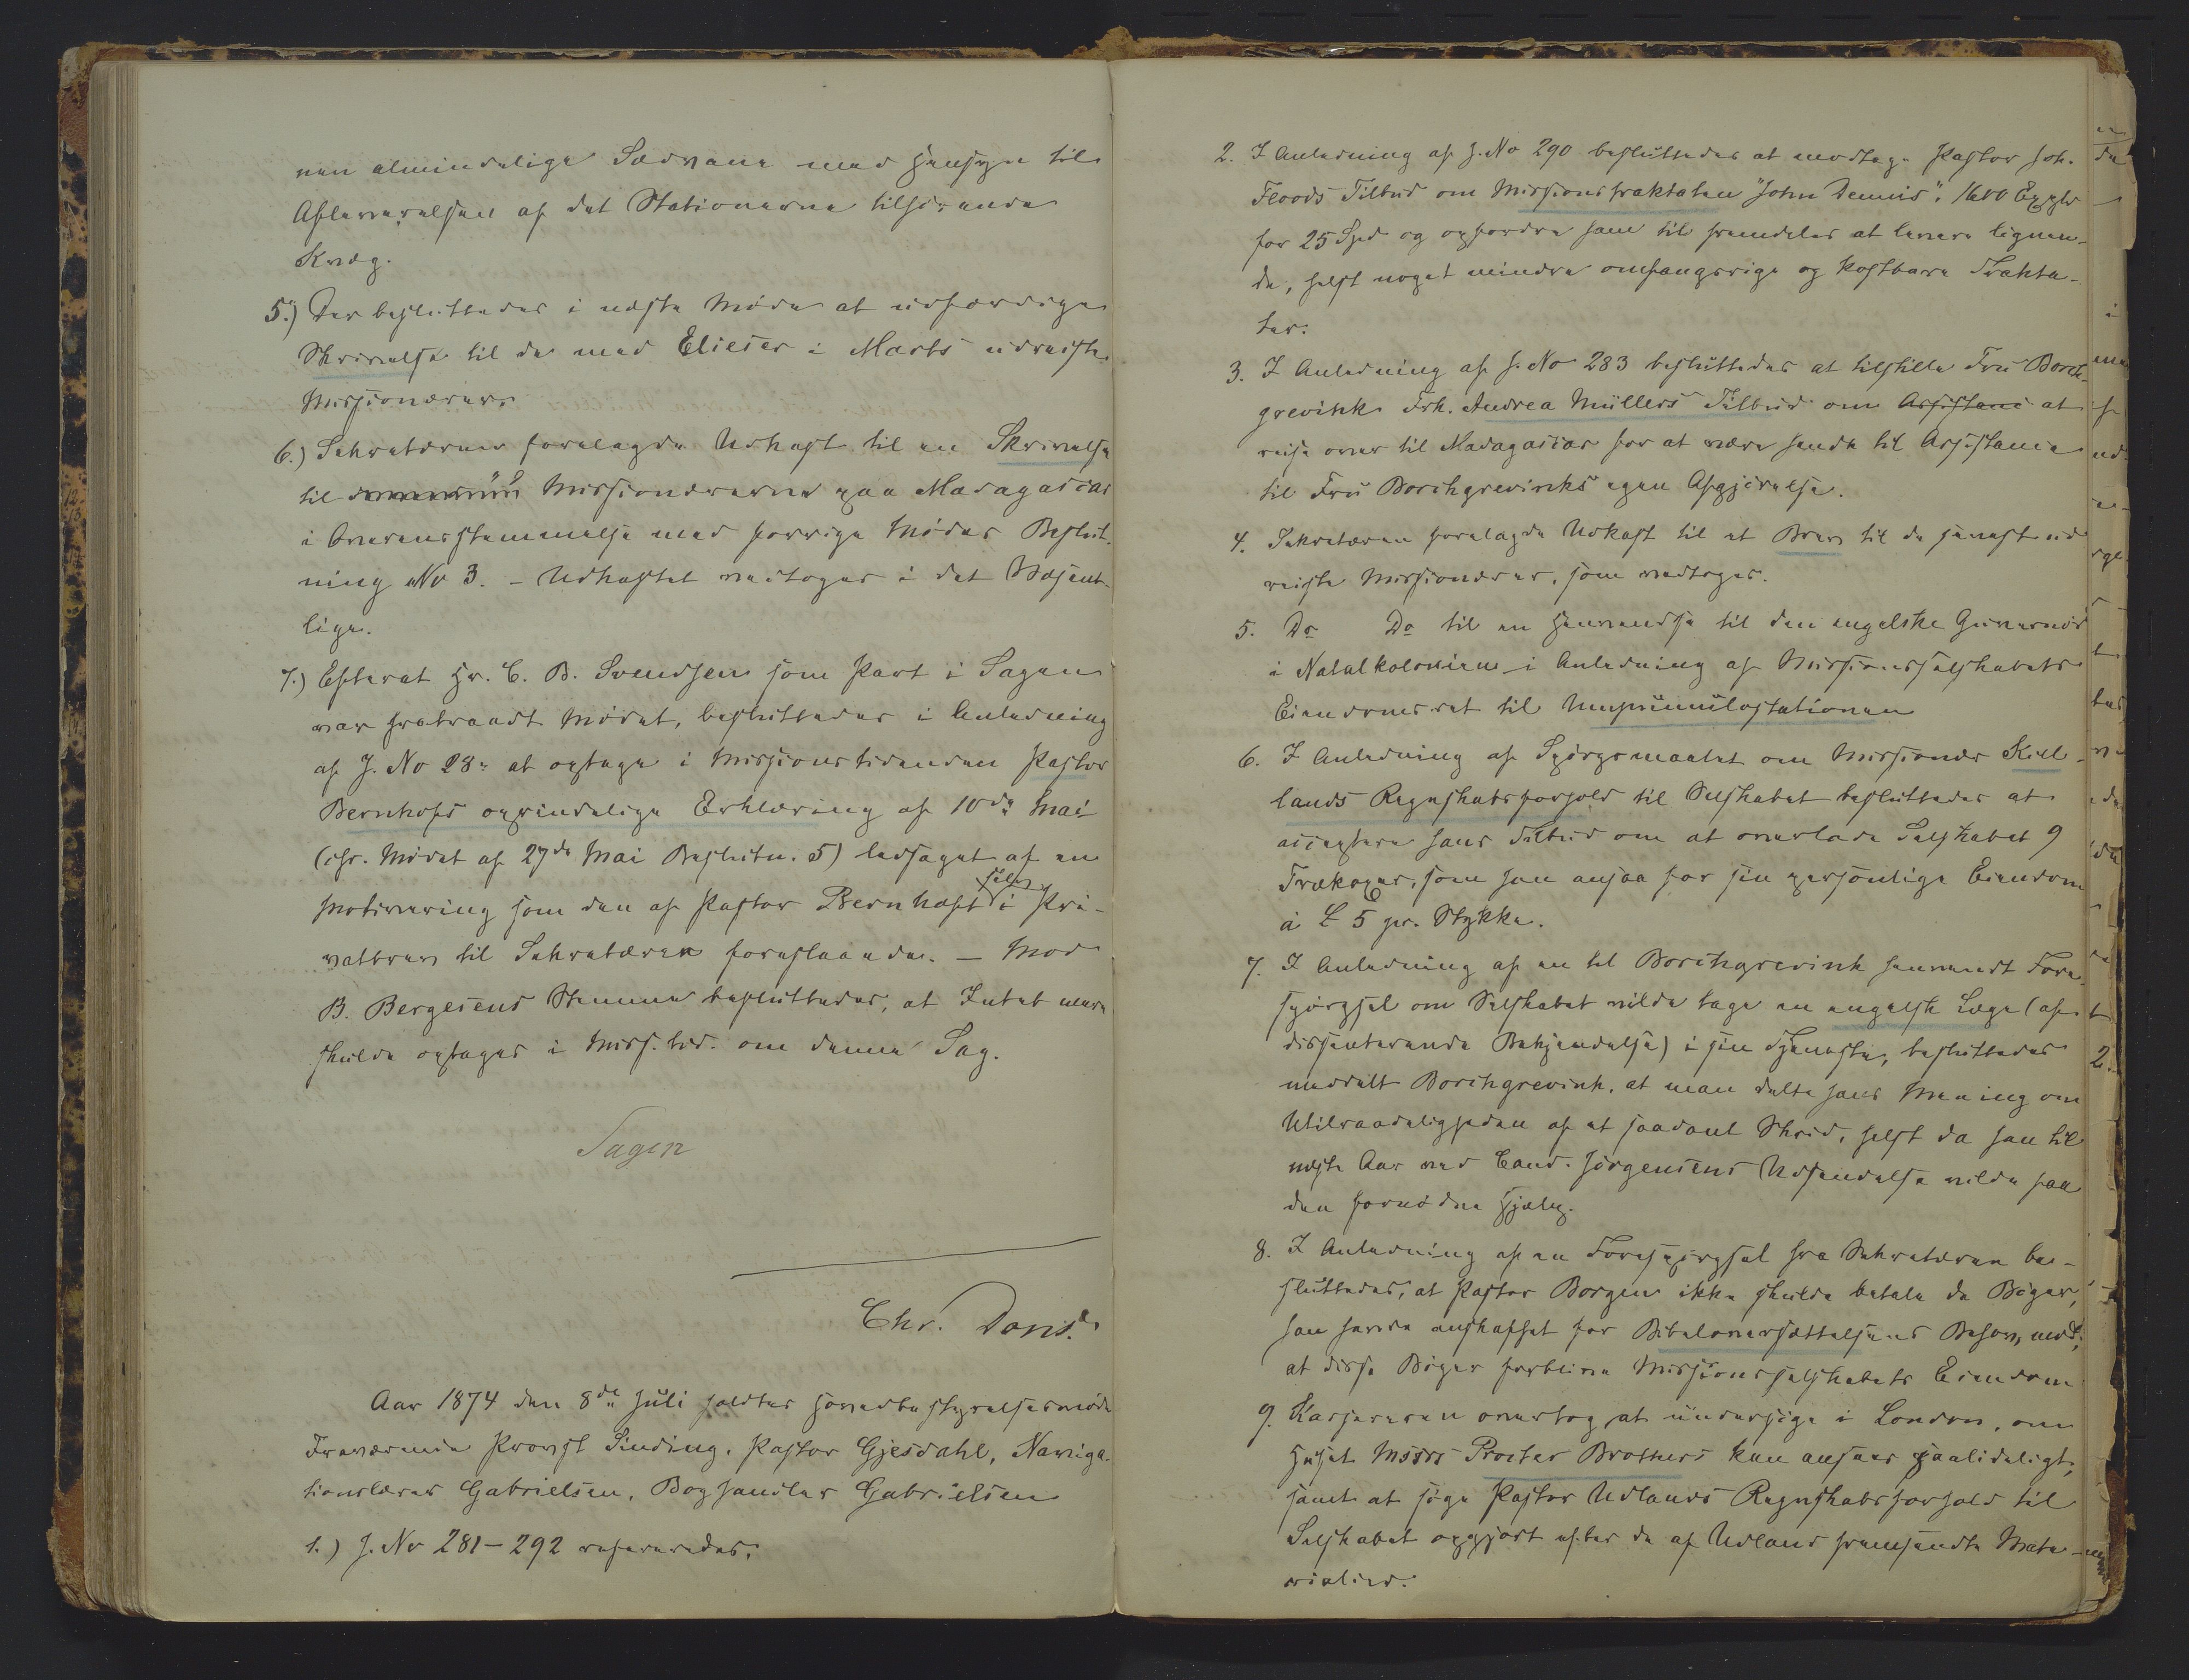 nen almindelige Sædvane med Hensyn til
Afleverelsen af det Stationerne tilhørende
Kvæg.
5.) Der besluttedes i næste Møde at udfærdige
Skrivelse til de med Elieser i Marts udreiste
Missionærer.
6.) Sekretæren forelagde Udkast til en Skrivelse
til Missionærerne paa Madagascar
i Overensstemmelse med forrige Mødes Beslut-
ning No 3. – Udkastet vedtoges i det Væsent-
lige.
7.) Efterat Hr. C. B. Svendsen som Part i Sagen
var fratraadt Mødet, besluttedes i Anledning
af J. No 28 at optage i Missionstidenden Pastor
Bernhofs oprindelige Erklæring af 10de Mai
(cfr. Mødet af 27de Mai Beslutn. 5) ledsaget af en
Motivering som den af Pastor Bernhoft selv i Pri-
vatbrev til Sekretæren foreslaaede. – Mod
B. Bergesens Stemme besluttedes, at Intet mere
skulde optages i Miss. tid. om denne Sag.
Sagen
Chr. Dons.
Aar 1874 den 8de Juli holdtes Hovedbestyrelsesmøde
Fraværende Provst Sinding, Pastor Gjesdahl, Naviga-
tionslærer Gabrielsen, Boghandler Gabrielsen
1.) J. No 281–292 refereredes.
2. I Anledning af J. No 290 besluttedes at modtage Pastor Joh.
Floods Tilbud om Missionstraktaten "John Dennis". 1600 Explr
for 25 Spd og opfordre ham til fremdeles at levere lignen-
de, helst noget mindre omfangsrige og kostbare Trakta-
ter.
3. I Anledning af J. No 283 besluttedes at tilstille Fru Borch-
grevink Frk. Andrea Müllers Tilbud om Assistanc at
reise over til Madagascar for at være hende til Assistance
til Fru Borchgrevinks egen Afgjørelse.
4. Sekretæren forelagde Udkast til et Brev til de senest ud
reiste Missionærer, som vedtoges.
5. Do Do til en Henvendse til den engelske Guvernør
i Natalkolonien i Anledning af Missionsselskabets
Eiendomsret til Umpumulostationen
6. I Anledning af Spørgsmaalet om Missionær Kiel-
lands Regnskabsforhold til Selskabet besluttedes at
acceptere hans Tilbud om at overlade Selskabet 9
Trækoxer, som han ansaa for sin personlige Eiendom
à £ 5 pr. Stykke.
7. I Anledning af en til Borchgrevink henvendt Fore-
spørgsel om Selskabet vilde tage en engelsk Læge (af
dissenterende Bekjendelse) i sin Tjeneste, besluttedes
meddelt Borchgrevink, at man delte hans Mening om
Utilraadeligheden af et saadant Skrid, helst da han til
næste Aar ved Cand. Jørgensens Udsendelse vilde faa
den fornødne Hjælp.
8. I Anledning af en Forespørgsel fra Sekretæren be-
sluttedes, at Pastor Borgen ikke skulde betale de Bøger,
han havde anskaffet for Bibeloversættelsens Behov, mod,
at disse Bøger forblive Missionsselskabets Eiendom
9. Kassereren overtog at undersøge i London, om
Huset Mssrs Procter Brothers kan ansees paalideligt,
samt at søge Pastor Udlands Regnskabsforhold til
Selskabet opgjort efter de af Udland fremsendte Mate-
rialier.